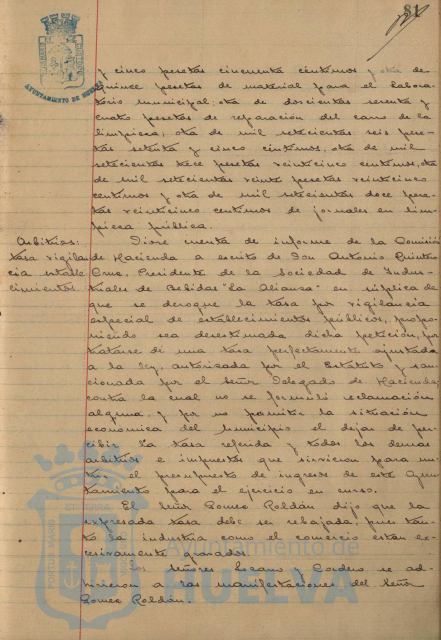 81
AYUNTAMIENTO DE HUELVA
y cinco pesetas cincuenta céntimos y otra de
quince pesetas de material para el labora-
torio municipal; otra de doscientas sesenta y
cuatro pesetas de reparación del carro de la
limpieza; otra de mil setecientas seis pese-
tas setenta y cinco céntimos, otra de mil
setecientas trece pesetas veinticinco céntimos, otra
de mil setecientas veinte pesetas veinticinco
céntimos y otra de mil setecientas doce pese-
tas veinticinco céntimos de jornales en lim-
pieza pública.
Arbitrios:
tasa vigilan-
cia estable-
cimientos.
Diose cuenta de informe de la Comisión
de Hacienda a escrito de Don Antonio Quintero
Cruz, Presidente de la Sociedad de Indus-
triales de Bebidas "La Alianza" en súplica de
que se derogue la tasa por vigilancia
especial de establecimientos públicos, propo-
niendo sea desestimada dicha petición, por
tratarse de una tasa perfectamente ajustada
a la ley, autorizada por el Estatuto y san-
cionada por el señor Delegado de Hacienda,
contra la cual no se formuló reclamación
alguna y por no permitir la situación
económica del municipio el dejar de per-
cibir la tasa referida y todos los demás
arbitrios e impuestos que sirvieron para nu-
trir el presupuesto de ingresos de este Ayun-
tamiento para el ejercicio en curso.
El señor Gomez Roldán dijo que la
expresada tasa debe ser rebajada, pues tan-
to la industria como el comercio están ex-
cesivamente gravados.
Los señores Lozano y Cordero se ad-
hirieron a las manifestaciones del señor
Gomez Roldán.
PORTUS MARIS
Ayuntamiento de
HUELVA